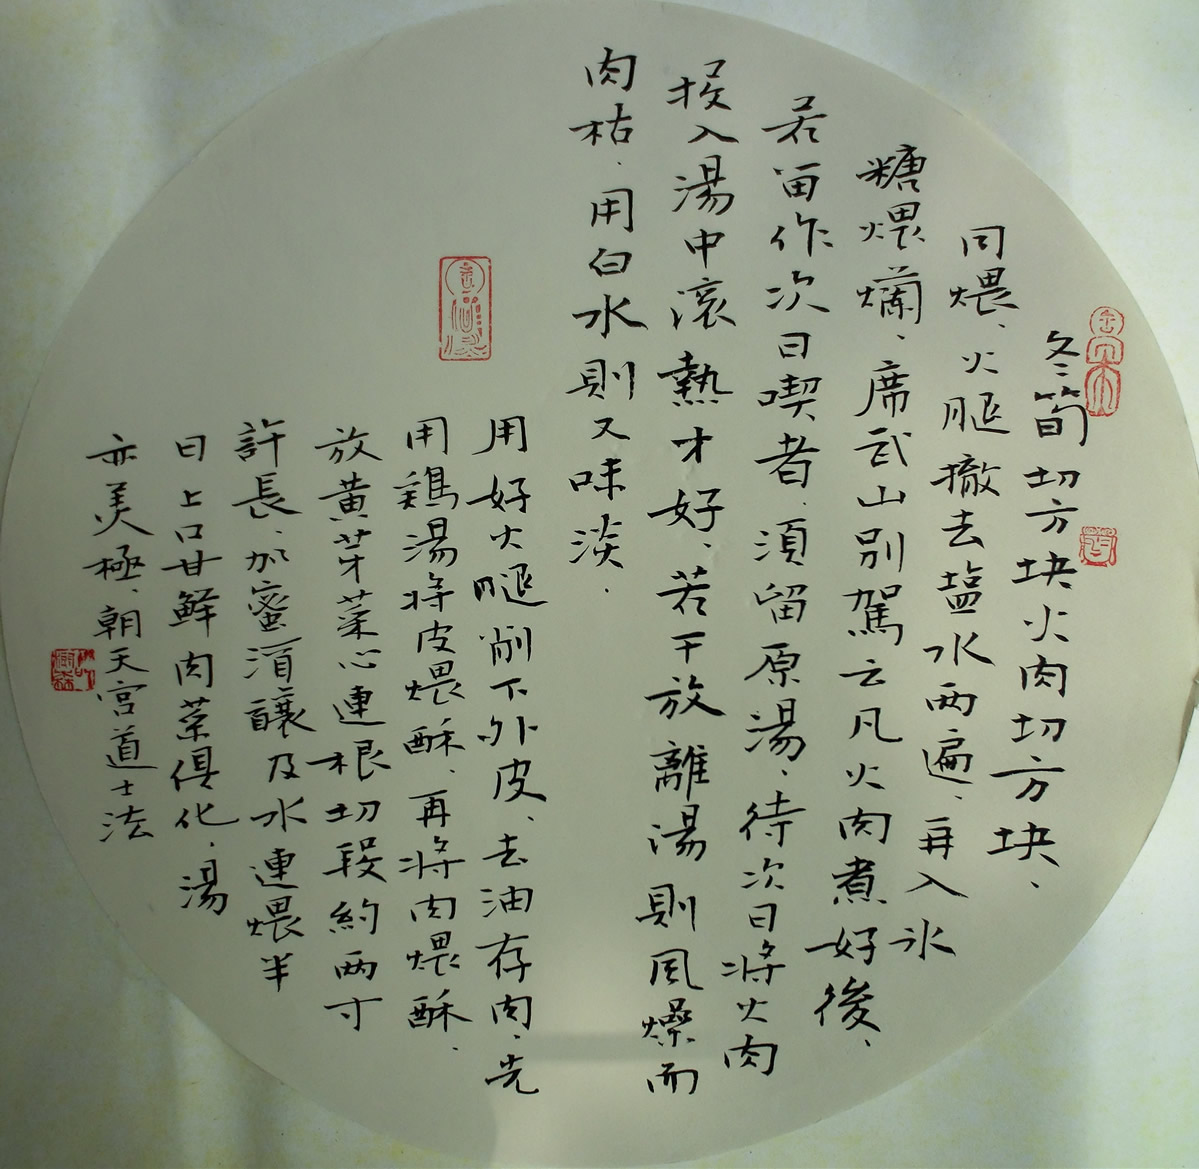 冬筍切方块火肉切方块、
同煨、火腿撤去塩水两遍、再入氷
糖煨爛、席武山别駕云凡火肉煮好後、
若畄作次日喫者、須留原湯、待次日将火肉
投入湯中滚熱才好、若干放離湯則風燥而
肉枯、用白水則又味淡.
用好火腿削下外皮、去油存肉、先
用鶏湯将皮煨酥、再将肉煨酥.
放黄芽菜心連根切段約两寸
許長、加蜜酒釀及水連煨半
日上口甘鲜肉菜俱化、湯
亦美極、朝天宫道士法